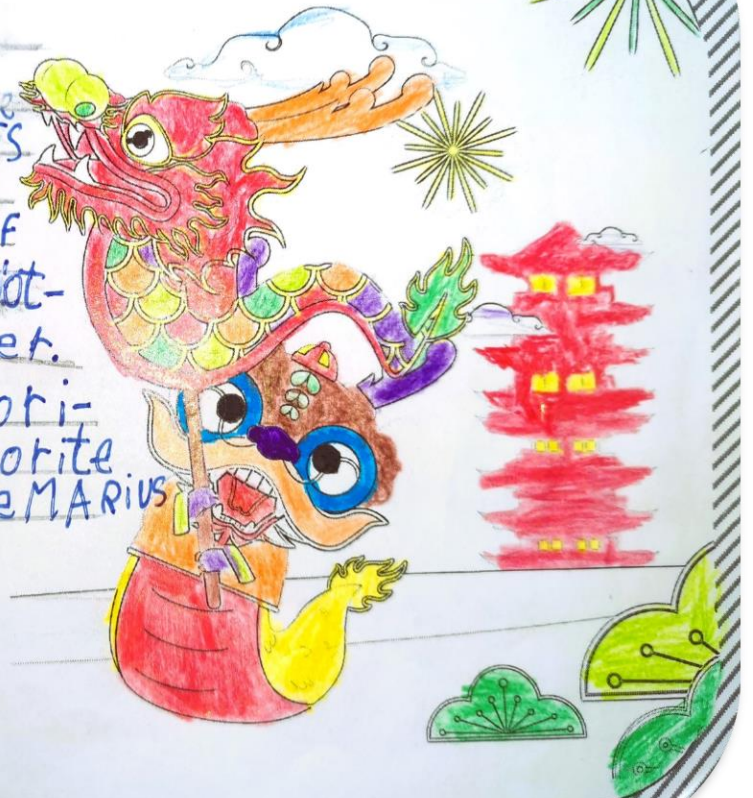 e
TS
E
ot-
er.
ori-
orite
eMARiUS